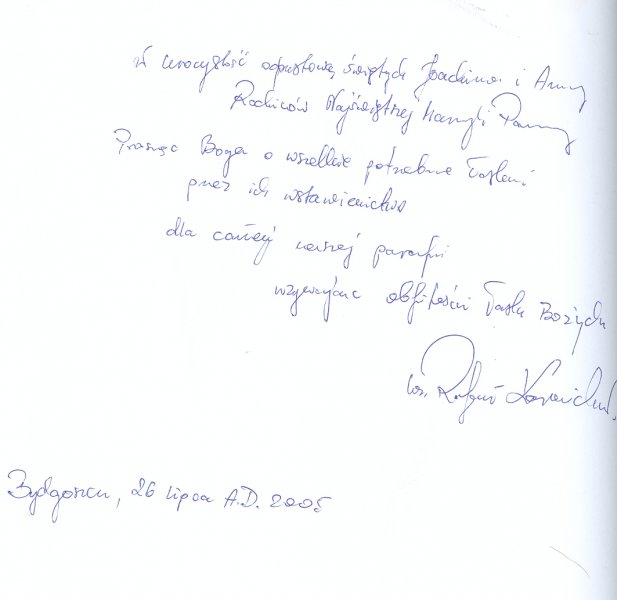 W uroczystość odpustową świętych Joachima i Anny
Rodziców Najświętszej Maryi Panny
Prosząc Boga o wszelkie potrzebne łaski
przez ich wstawiennictwo
dla całej naszej parafii
wzywając obfitości Łask Bożych
ks. Rafał
Bydgoszcz, 26 lipca A.D. 2005